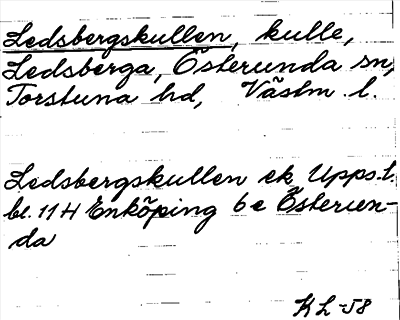 Ledsbergskullen, kulle,
Ledsberga, Österunda sn,
Torstuna hd, Västm. l.
Ledsbergskullen ek Upps.l.
bl. 11 H Enköping 6 e Österun-
da
KL -58